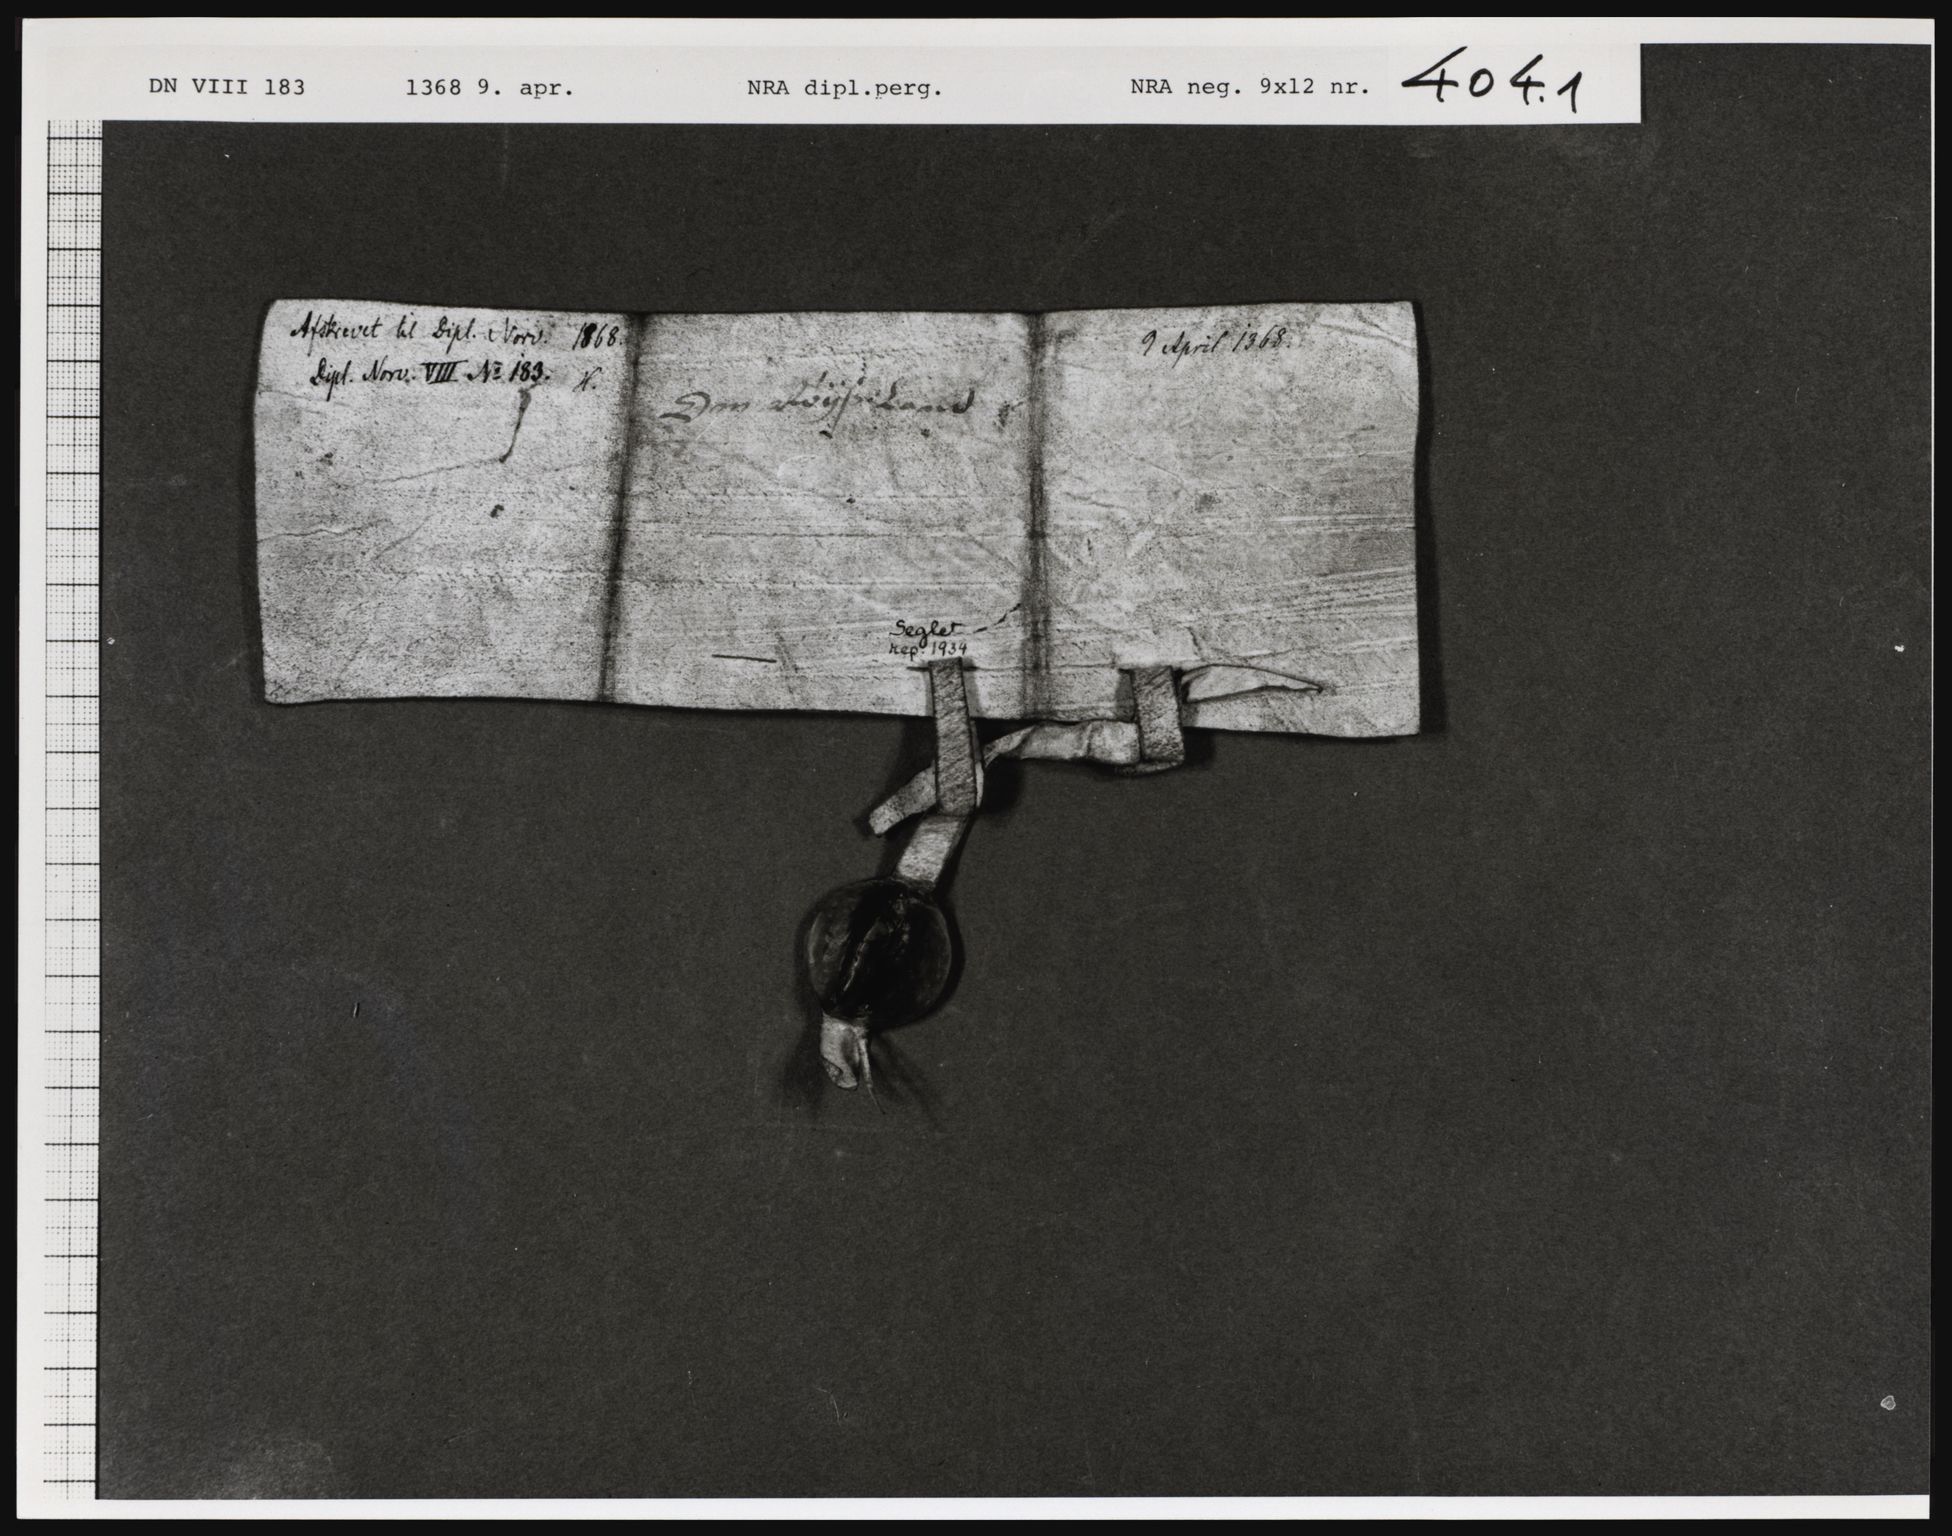 DN VIII 183 1368 9. apr. NRA dipl.perg. NRA neg. 9x12 nr. 404.1
Afskrevet til Dipl. Norv. 1868.
Dipl. Norv. VIII № 183. H.
9 April 1368.
Om Röÿseland
Seglet
rep. 1934